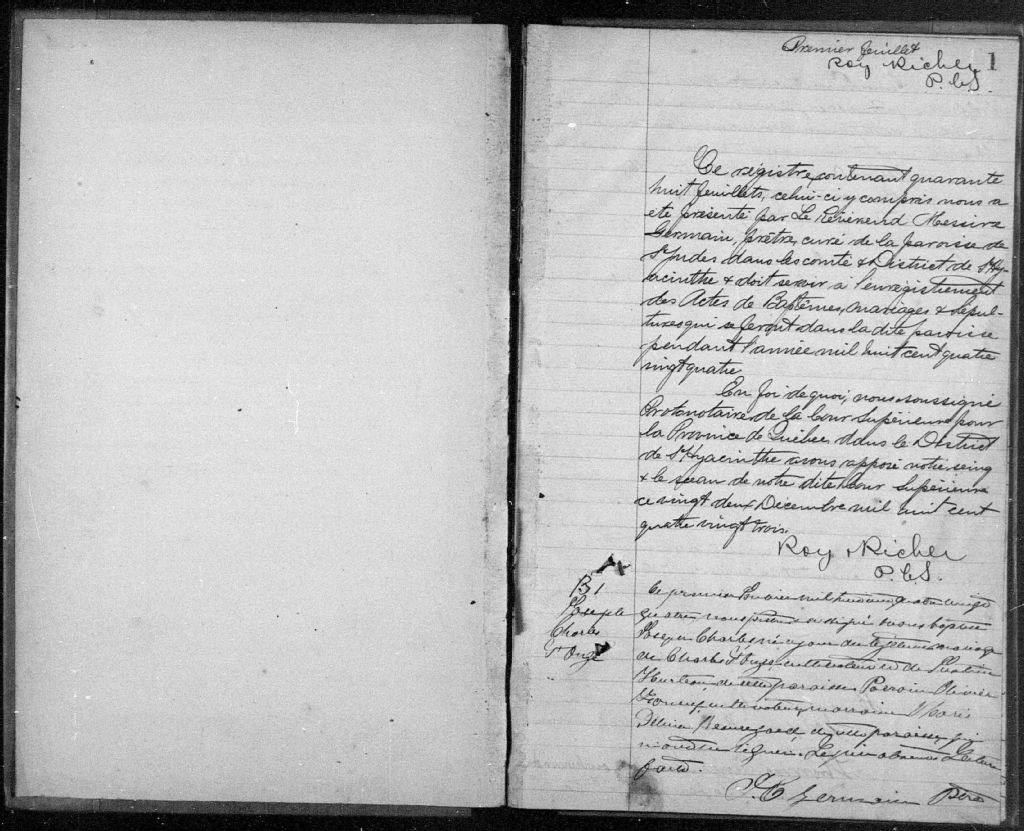 Premier feuillet
1
Roy & Richer
P.C.S.
Ce régistre, contenant quarante
huit feuillets, celui-ci y compris nous a
été présenté par Le Révérend Messire
Germain, prêtre, curé de la paroisse de
St Judes dans les comté & District de St Hy-
acinthe & doit servir à l'enregistrement
des Actes de Baptêmes, mariages & sépul-
tures qui se feront dans la dite paroisse
pendant l'année mil huit cent quatre
vingt quatre
En foi de quoi, nous soussigné
Protonotaire de la Cour Supérieure pour
la Province de Québec, dans le District
de St Hyacinthe avons apposé notre seing
& le sceau de notre dite Cour Supérieure
ce vingt deux Décembre mil huit cent
quatre vingt trois.
Roy & Richer
P.C.S.
B 1
Joseph
Charles
Ce premier Janvier mil huit cent quatre vingt
quatre nous prêtre soussigné avons baptisé
Joseph Charles né du légitime mariage
de Charles cultivateur et de
de cette paroisse Parrain Olivier
cultivateur, marraine Marie
Beauregard de cette paroisse, qui
signer. Le père absent. Lecture
faite.
Germain Ptre